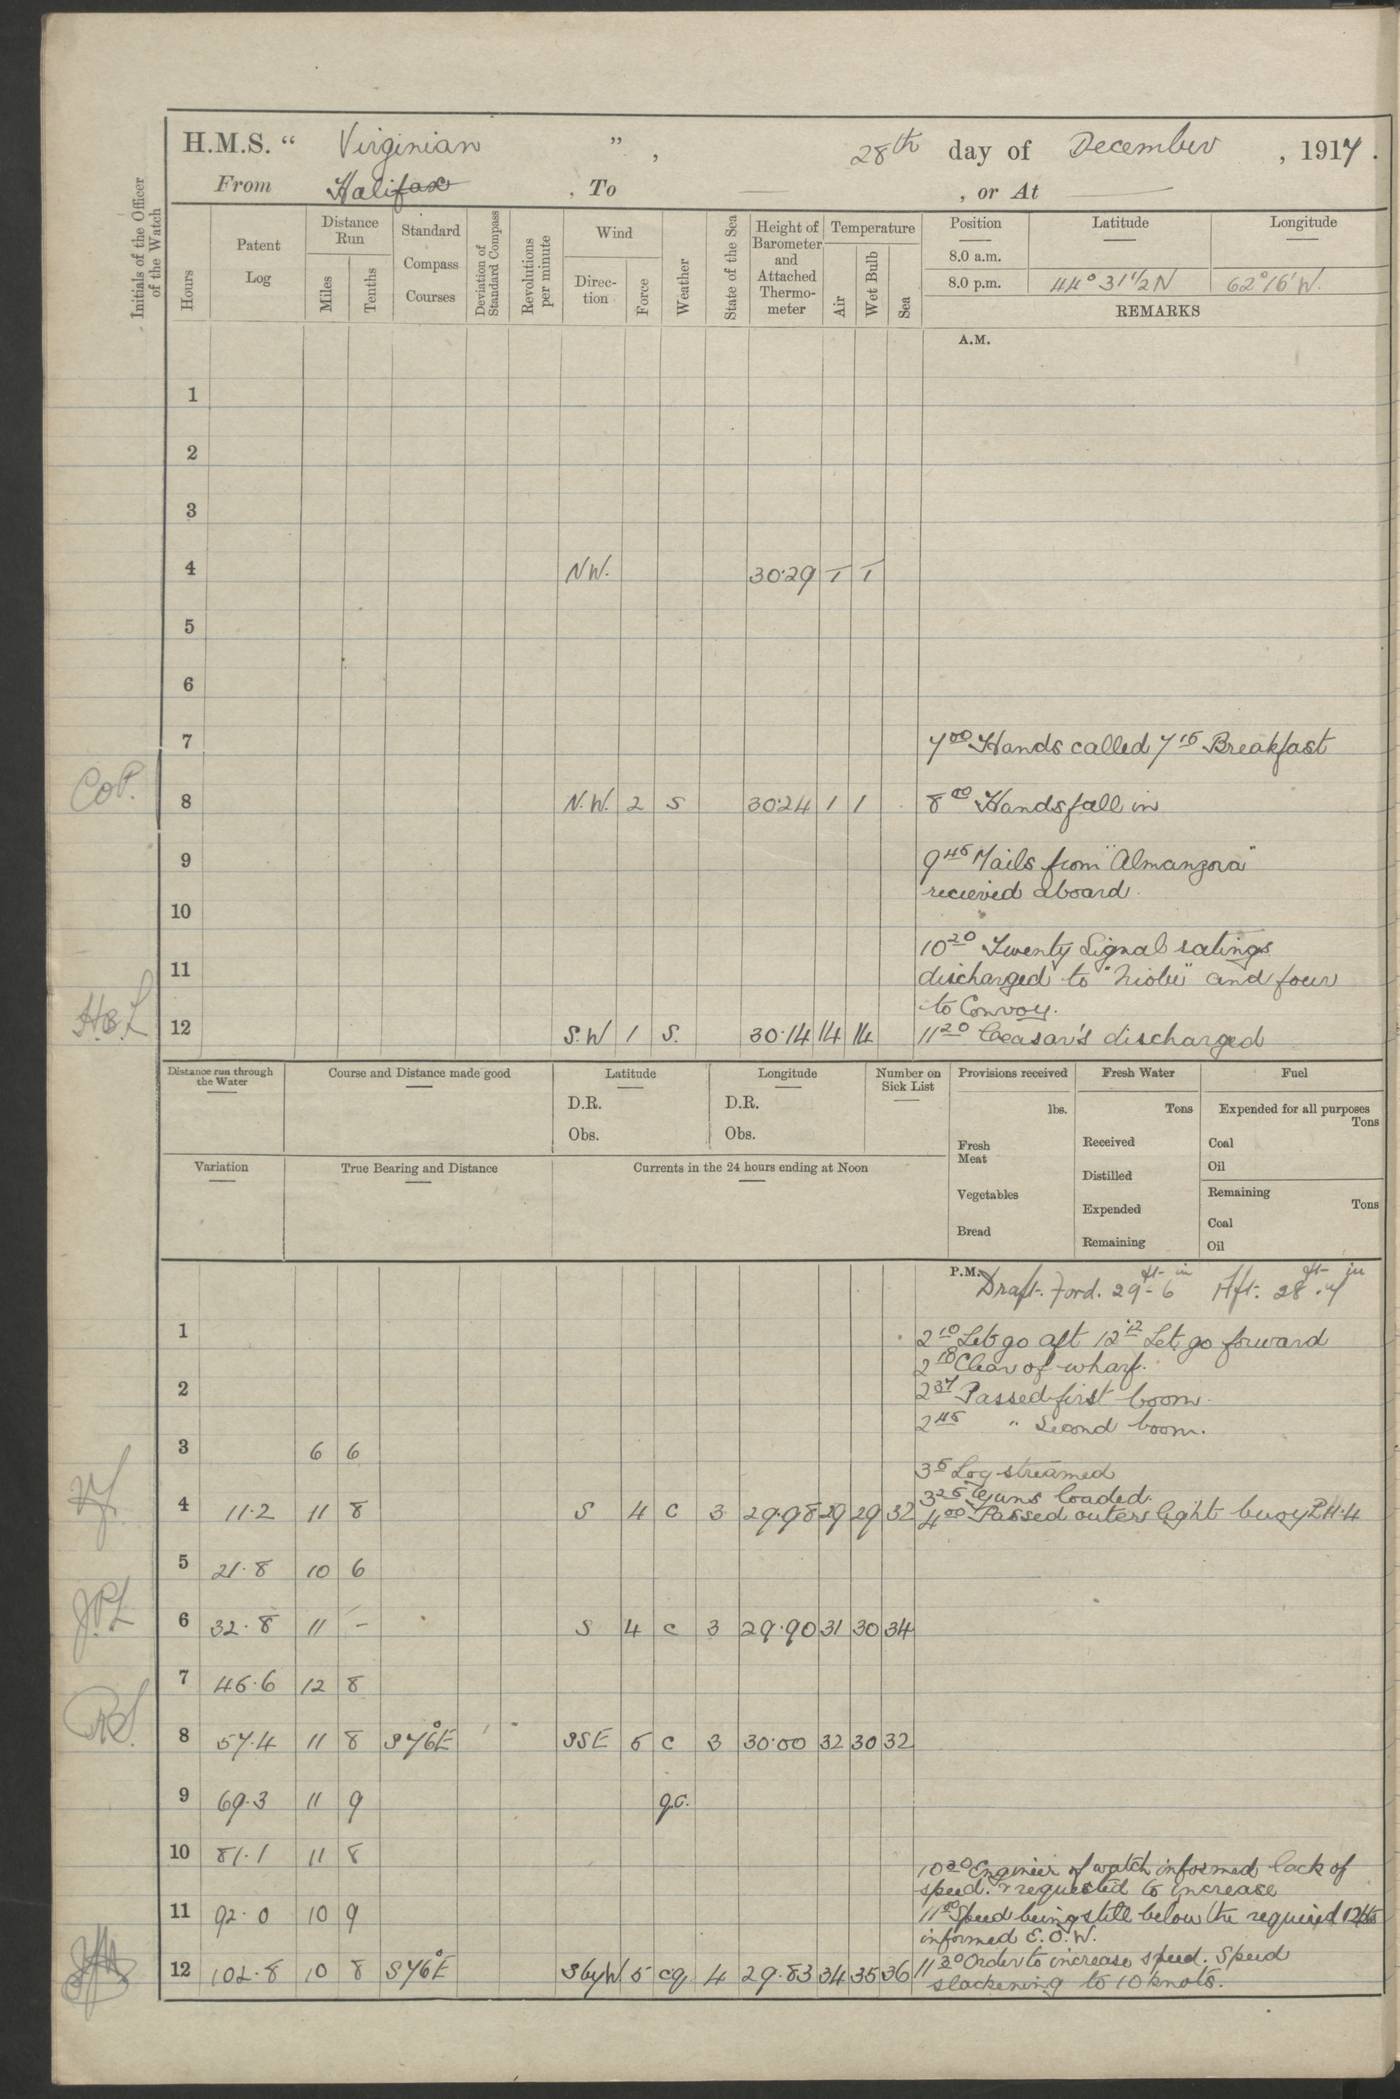 H.M.S. “ Virginian ” , 28th day of December , 1917 .
From Halifax , To — , or At —
Initials of the Officer of the Watch
Hours
Patent Log
Distance Run
Miles
Tenths
Standard Compass Courses
Deviation of Standard Compass
Revolutions per minute
Wind
Direction
Force
Weather
State of the Sea
Height of Barometer and Attached Thermometer
Temperature
Air
Wet Bulb
Sea
Position Latitude Longitude
8.0 a.m.
8.0 p.m. 44° 31 1/2 N 62° 16' W.
REMARKS
A.M.
1
2
3
4 N.W. 30.29 T T
5
6
7 7 00 Hands called 7 15 Breakfast
C.O.P.
8 N.W. 2 S 30.24 1 1 8 00 Hands fall in
9 9 45 Mails from "Almanzora"
recieved aboard.
10
10 20 Twenty Signal ratings
11 discharged to "Niobe" and four
to Convoy.
12 S.W 1 S. 30.14 14 14 11 20 Ceasar's discharged
Distance run through the Water
Course and Distance made good
Latitude
D.R.
Obs.
Longitude
D.R.
Obs.
Number on Sick List
Provisions received
lbs.
Fresh Meat
Vegetables
Bread
Fresh Water
Tons
Received
Distilled
Expended
Remaining
Fuel
Expended for all purposes
Tons
Coal
Oil
Remaining
Tons
Coal
Oil
Variation
True Bearing and Distance
Currents in the 24 hours ending at Noon
P.M. Draft. Ford. 29 ft- 6 in Aft. 28 ft. 7 in
1 2 10 Let go aft 12 12 Let go forward
2 18 Clear of wharf.
2 2 37 Passed first boom.
2 45 " Second boom.
3 6 6
3 5 Log streamed
3 25 Guns loaded.
4 11.2 11 8 S 4 c 3 29.98 29 29 32 4 00 Passed outer light buoy P.H.4
5 21.8 10 6
J.P.L
6 32.8 11 - S 4 c 3 29.90 31 30 34
7 45.6 12 8
8 57.4 11 8 S76°E SSE 5 c 3 30.00 32 30 32
9 69.3 11 9 qc.
10 81.1 11 8
10 20 Engineer of watch informed lack of
speed. & requested to increase
11 92.0 10 9 11 00 Speed being still below the required 12 Kts
informed E.O.W.
12 102.8 10 8 S76°E SbyW 5 cq 4 29.83 34 35 36 11 30 Order to increase speed. Speed
slackening to 10 knots.